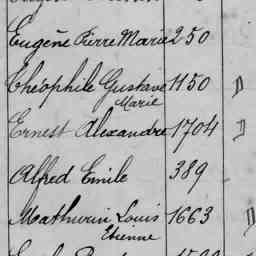 Eugène Pierre Marie 250
Théophile Gustave 1150
Marie
Ernest Alexandre 1704
Alfred Emile 389
Mathurin Louis 1663
Etienne